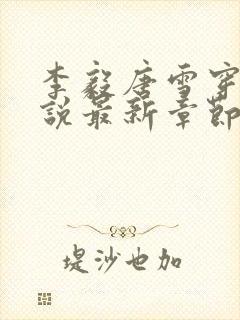 李毅唐雪穿
说最新章节
堤沙也加